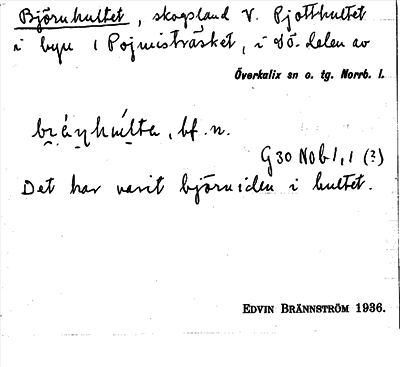 Björnhultet, skogsland V. Pjotthultet
i byn 1 Pojmisträsket, i sö. delen av
Överkalix sn o. tg. Norrb. l.
bf. n.
G 30 Nob 1, 1 (?)
Det har varit björniden i hultet.
EDVIN BRÄNNSTRÖM 1936.